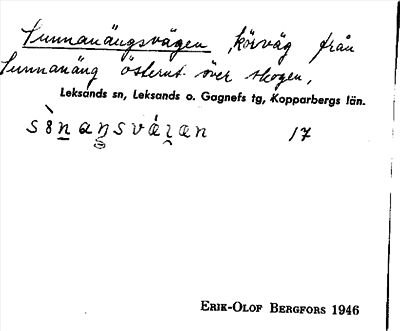 Sunnanängsvägen, körväg från
Sunnanäng österut över skogen,
Leksands sn, Leksands o. Gagnefs tg, Kopparbergs län.
17
ERIK-OLOF BERGFORS 1946